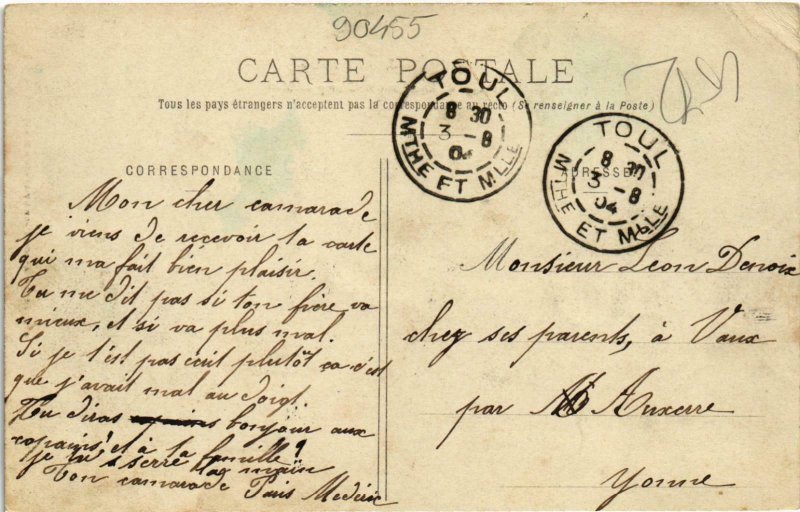 90455
CARTE POSTALE
Tous les pays étrangers n'acceptent pas la correspondance au recto (Se renseigner à la Poste)
TOUL
8 30
3 - 8
04
MTHE ET MLLE
TOUL
8 30
3 - 8
04
MTHE ET MLLE
CORRESPONDANCE
ADRESSE
Mon cher camarade
je viens de recevoir ta carte
qui ma fait bien plaisir.
Tu me dit pas si ton frère va
mieux, et si va plus mal.
Si je t'est pas écrit plutôt ça c'est
que j'avait mal au doigt.
Tu diras bonjour aux
copains! et à ta famille!
je te serre la main
Ton camarade Paris Médéric
Monsieur Léon Denoix
chez ses parents, à Vaux
par Auxerre
Yonne